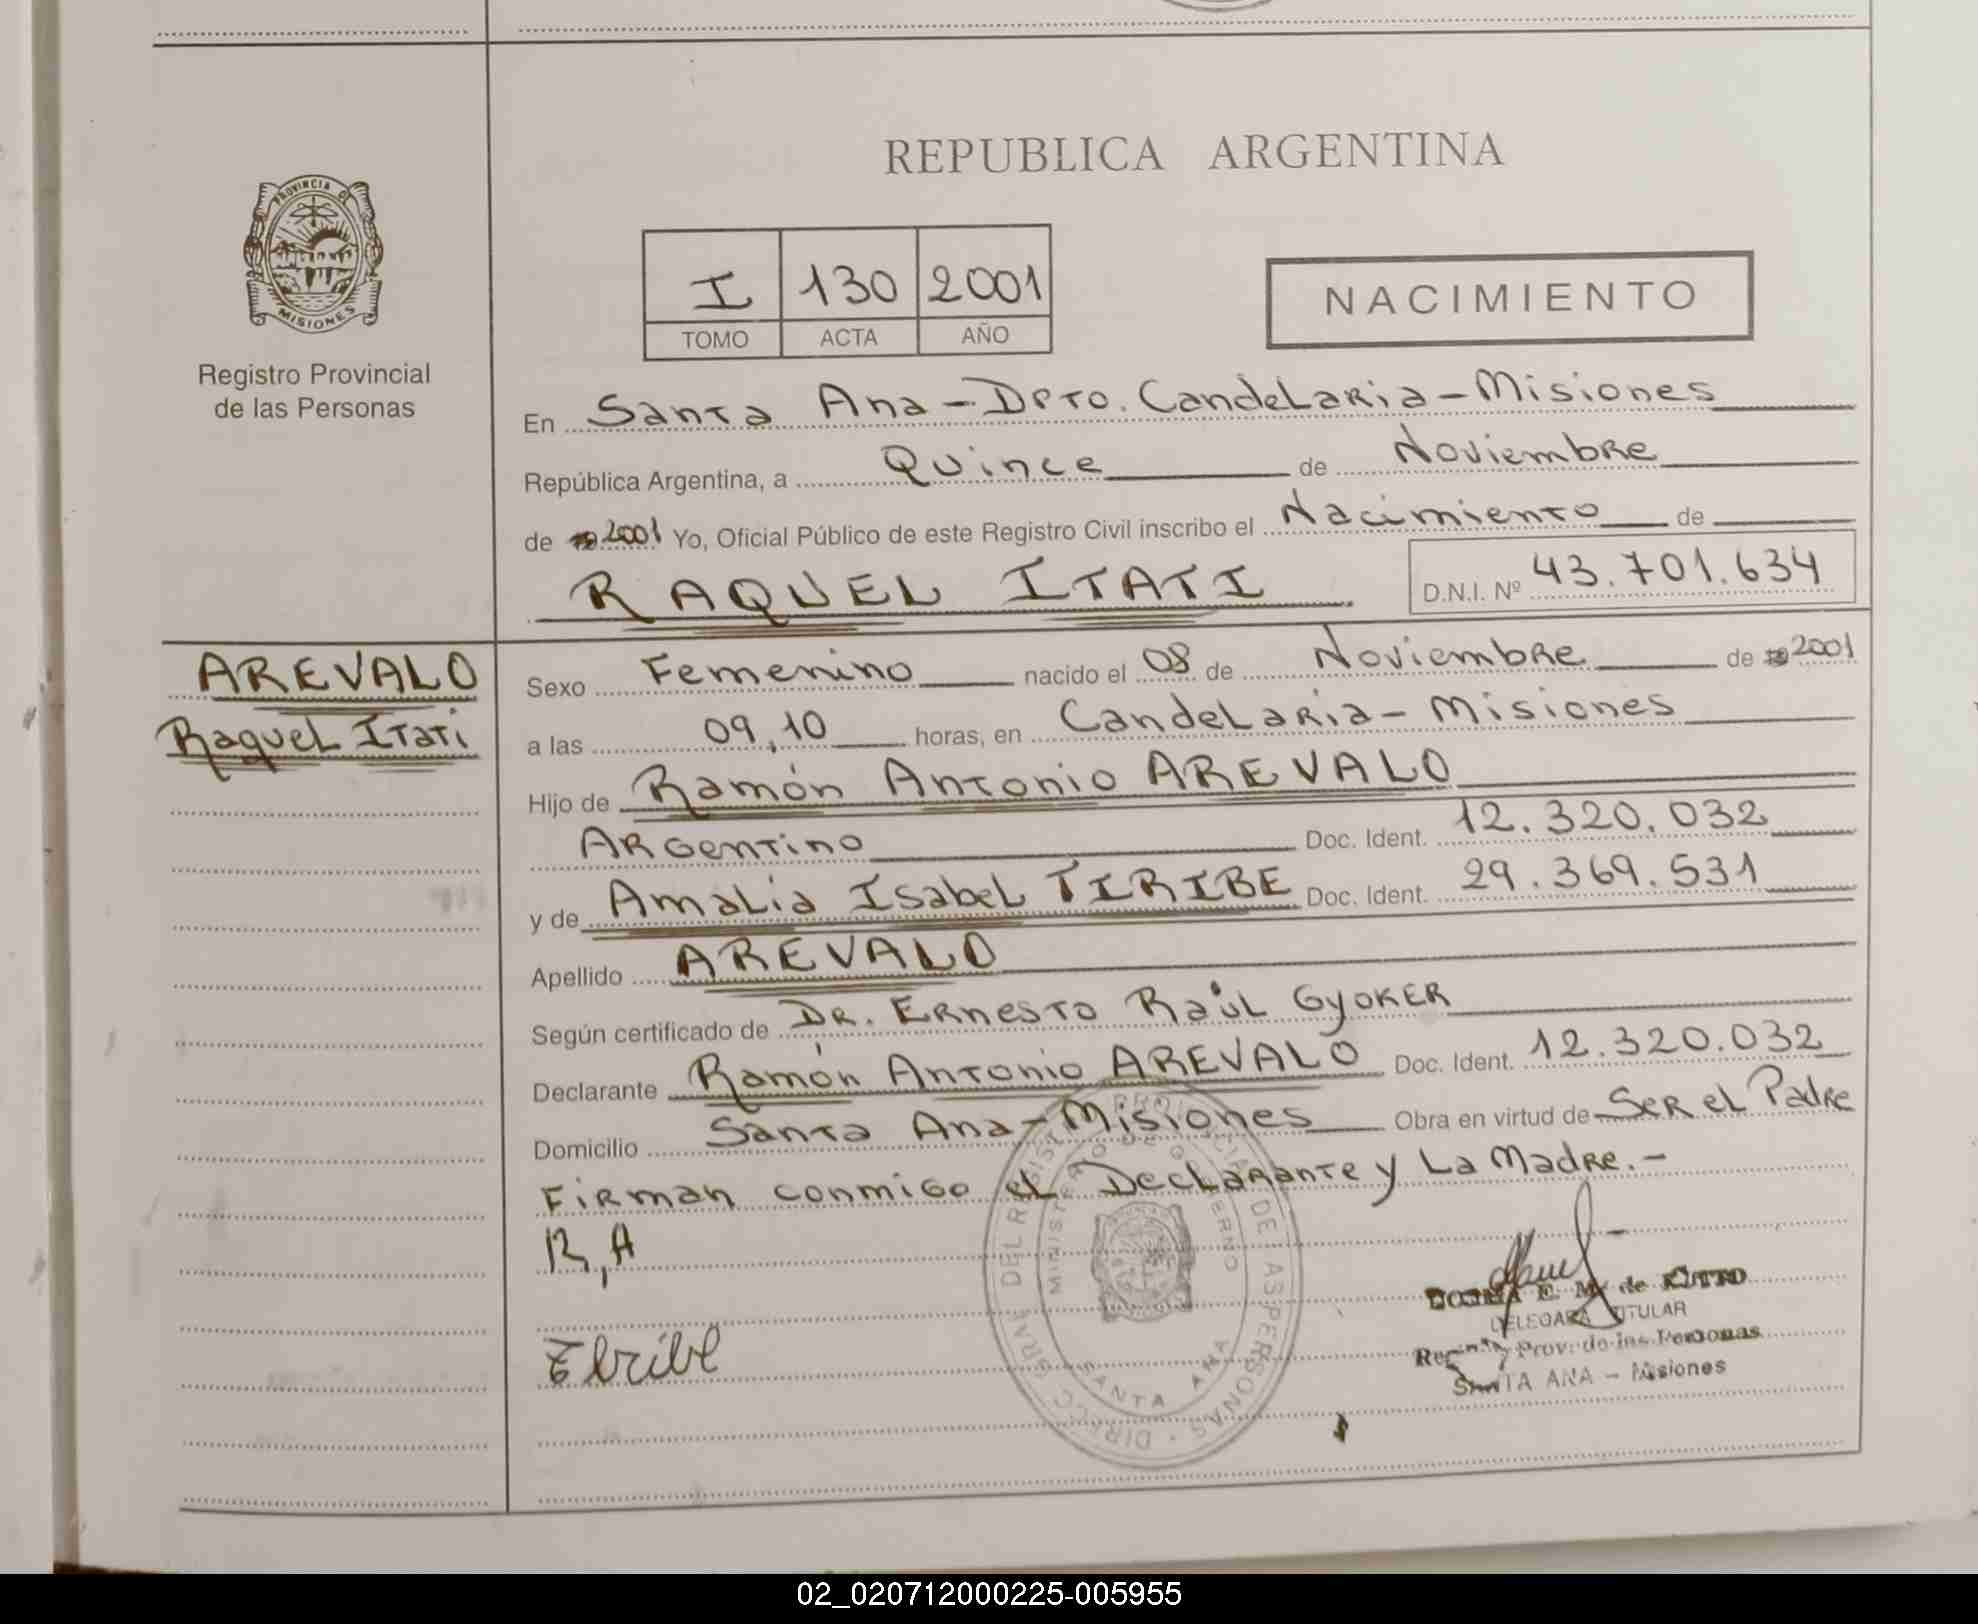 REPUBLICA ARGENTINA
PROVINCIA DE
MISIONES
Registro Provincial
de las Personas
I 130 2001
TOMO ACTA AÑO
NACIMIENTO
En Santa Ana - Dpto. Candelaria - Misiones
República Argentina, a Quince de Noviembre
de 2001 Yo, Oficial Público de este Registro Civil inscribo el Nacimiento de
RAQUEL ITATI D.N.I. Nº 43.701.634
AREVALO
Raquel Itati
Sexo Femenino nacido el 08 de Noviembre de 2001
a las 09,10 horas, en Candelaria - Misiones
Hijo de Ramón Antonio AREVALO
Argentino Doc. Ident. 12.320.032
y de Amalia Isabel TIRIBE Doc. Ident. 29.369.531
Apellido AREVALO
Según certificado de Dr. Ernesto Raúl Gyoker
Declarante Ramón Antonio AREVALO Doc. Ident. 12.320.032
Domicilio Santa Ana - Misiones Obra en virtud de Ser el Padre
Firman conmigo el Declarante y La Madre. -
R, A
DIRECC. GRAL DEL REGIST. PROVINCIAL DE LAS PERSONAS
MINISTERIO DE GOBIERNO
SANTA ANA
E. M. de
DELEGADA TITULAR
Prov. de las Personas
SANTA ANA - Misiones
02_020712000225-005955